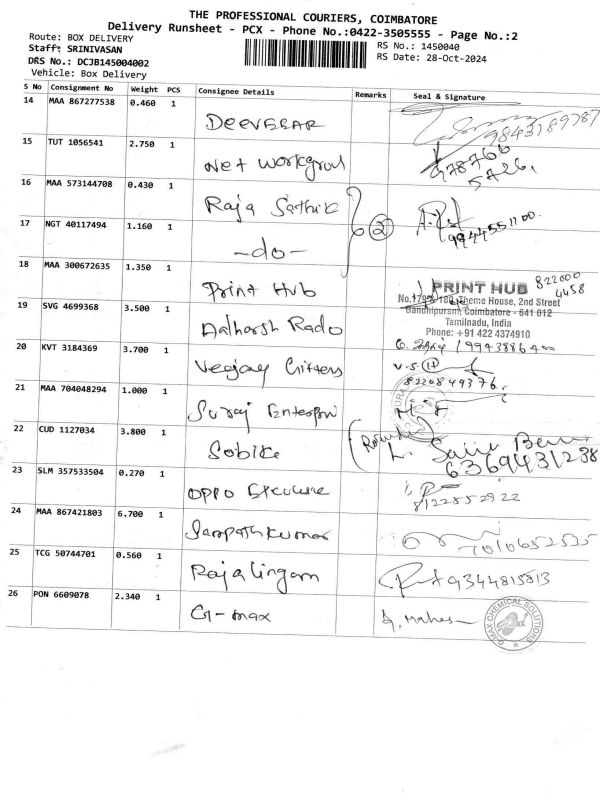 THE PROFESSIONAL COURIERS, COIMBATORE
Delivery Runsheet - PCX - Phone No.:0422-3505555 - Page No.:2
Route: BOX DELIVERY
RS No.: 1450040
Staff: SRINIVASAN
RS Date: 28-Oct-2024
DRS No.: DCJB145004002
Vehicle: Box Delivery
S No Consignment No Weight PCS Consignee Details Remarks Seal & Signature
14 MAA 867277538 0.460 1
DEEVEEAR
15 TUT 1056541 2.750 1
Net workgrou
978766
5726.
16 MAA 573144708 0.430 1
Raja Sathik
2
17 NGT 40117494 1.160 1
9944551100.
-do-
18 MAA 300672635 1.350 1
Print Hub
PRINT HUB
822000
4458
Theme House, 2nd Street
19 SVG 4699368 3.500 1
Gandhipuram, Coimbatore - 641 012
Tamilnadu, India
Phone: +91 422 4374910
20 KVT 3184369 3.700 1
Veejay
V.S.
8220849376.
21 MAA 704048294 1.000 1
Suraj Enterpri
22 CUD 1127034 3.800 1
Sobika
6369431238
23 SLM 357533504 0.270 1
OPPO
8122552922
24 MAA 867421803 6.700 1
Sampath Kumar
7010652535
25 TCG 50744701 0.560 1
Rajalingam
9344815813
26 PON 6609078 2.340 1
G-max
A. Mahes
G-MAX CHEMICAL SOLUTIONS